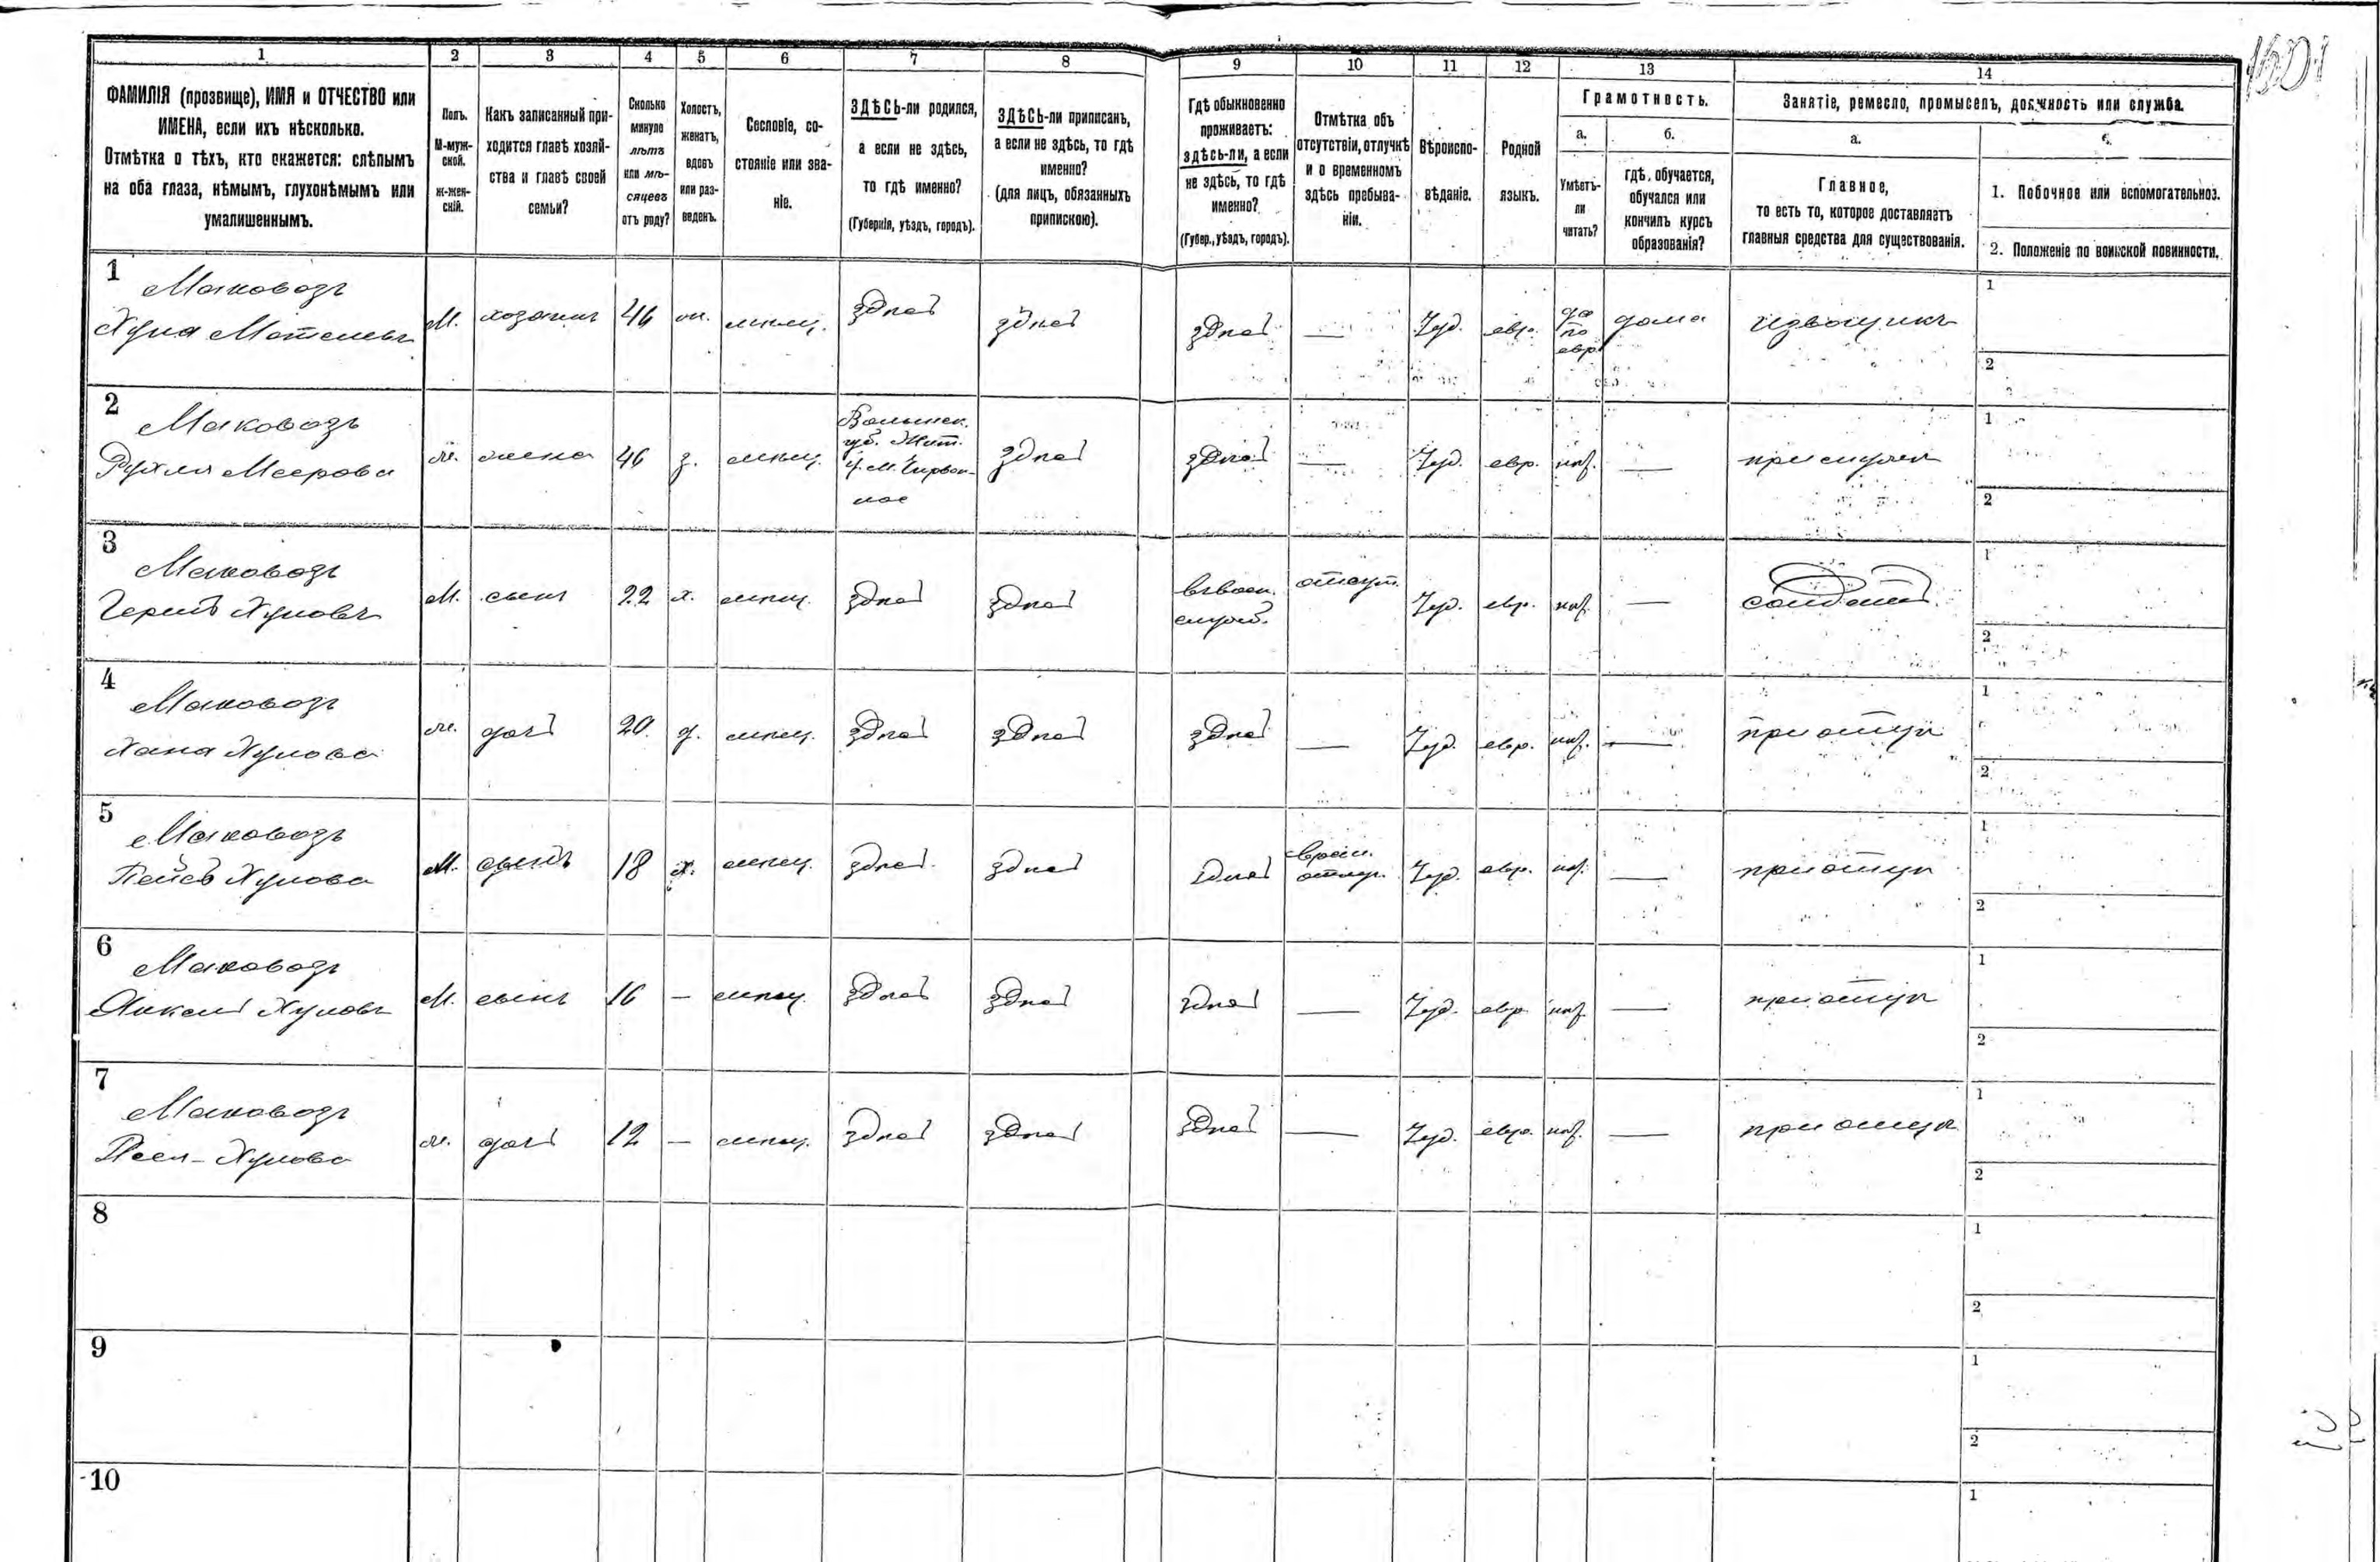 1 2 3 4 5 6 7 8 9 10 11 12 13 14
ФАМИЛІЯ (прозвище), ИМЯ и ОТЧЕСТВО или
ИМЕНА, если ихъ нѣсколько.
Отмѣтка о тѣхъ, кто окажется: слѣпымъ
на оба глаза, нѣмымъ, глухонѣмымъ или
умалишеннымъ.
Полъ.
М-муж-
ской.
ж-жен-
скій.
Какъ записанный при-
ходится главѣ хозяй-
ства и главѣ своей
семьи?
Сколько
минуло
лѣтъ
или мѣ-
сяцевъ
отъ роду?
Холостъ,
женатъ,
вдовъ
или раз-
веденъ.
Сословіе, со-
стояніе или зва-
ніе.
ЗДѢСЬ-ли родился,
а если не здѣсь,
то гдѣ именно?
(Губернія, уѣздъ, городъ).
ЗДѢСЬ-ли приписанъ,
а если не здѣсь, то гдѣ
именно?
(для лицъ, обязанныхъ
припискою).
Гдѣ обыкновенно
проживаетъ:
здѣсь-ли, а если
не здѣсь, то гдѣ
именно?
(Губер., уѣздъ, городъ).
Отмѣтка объ
отсутствіи, отлучкѣ
и о временномъ
здѣсь пребыва-
ніи.
Вѣроиспо-
вѣданіе.
Родной
языкъ.
Грамотность.
а.
Умѣетъ-
ли
читать?
б.
гдѣ, обучается,
обучался или
кончилъ курсъ
образованія?
Занятіе, ремесло, промыселъ, должность или служба.
а.
Главное,
то есть то, которое доставляетъ
главныя средства для существованія.
б.
1. Побочное или вспомогательное.
2. Положеніе по воинской повинности.
1
Маковозъ
Хуна Мотелевъ
М. хозяинъ 46 жн. мѣщ. здѣсь здѣсь здѣсь — Іуд. евр. да по евр. дома извощикъ
1
2
2
Маковозъ
Рухля Меерова
ж. жена 46 з.
мѣщ.
Волынск.
губ. Жит.
у. м.
здѣсь здѣсь — Іуд. евр. нѣт. —
1
2
3
Маковозъ
Герш Хуновъ
М. сынъ 22 х. мѣщ. здѣсь здѣсь
въ воен.
служб.
отсут. Іуд. евр. нѣт. — солдатъ
1
2
4
Маковозъ
Хана Хунова
ж. дочь 20 д. мѣщ. здѣсь здѣсь здѣсь — Іуд. евр. нѣт. — при отцѣ
1
2
5
Маковозъ
Хунова
М. сынъ 18 х. мѣщ. здѣсь здѣсь здѣсь
врем.
отлуч.
Іуд. евр. нѣт. — при отцѣ
1
2
6
Маковозъ
Янкель Хуновъ
М. сынъ 16 — мѣщ. здѣсь здѣсь здѣсь — Іуд. евр. нѣт. — при отцѣ
1
2
7
Маковозъ
Хунова
ж. дочь 12 — мѣщ. здѣсь здѣсь здѣсь — Іуд. евр. нѣт. — при отцѣ
1
2
8
1
2
9
1
2
10
1